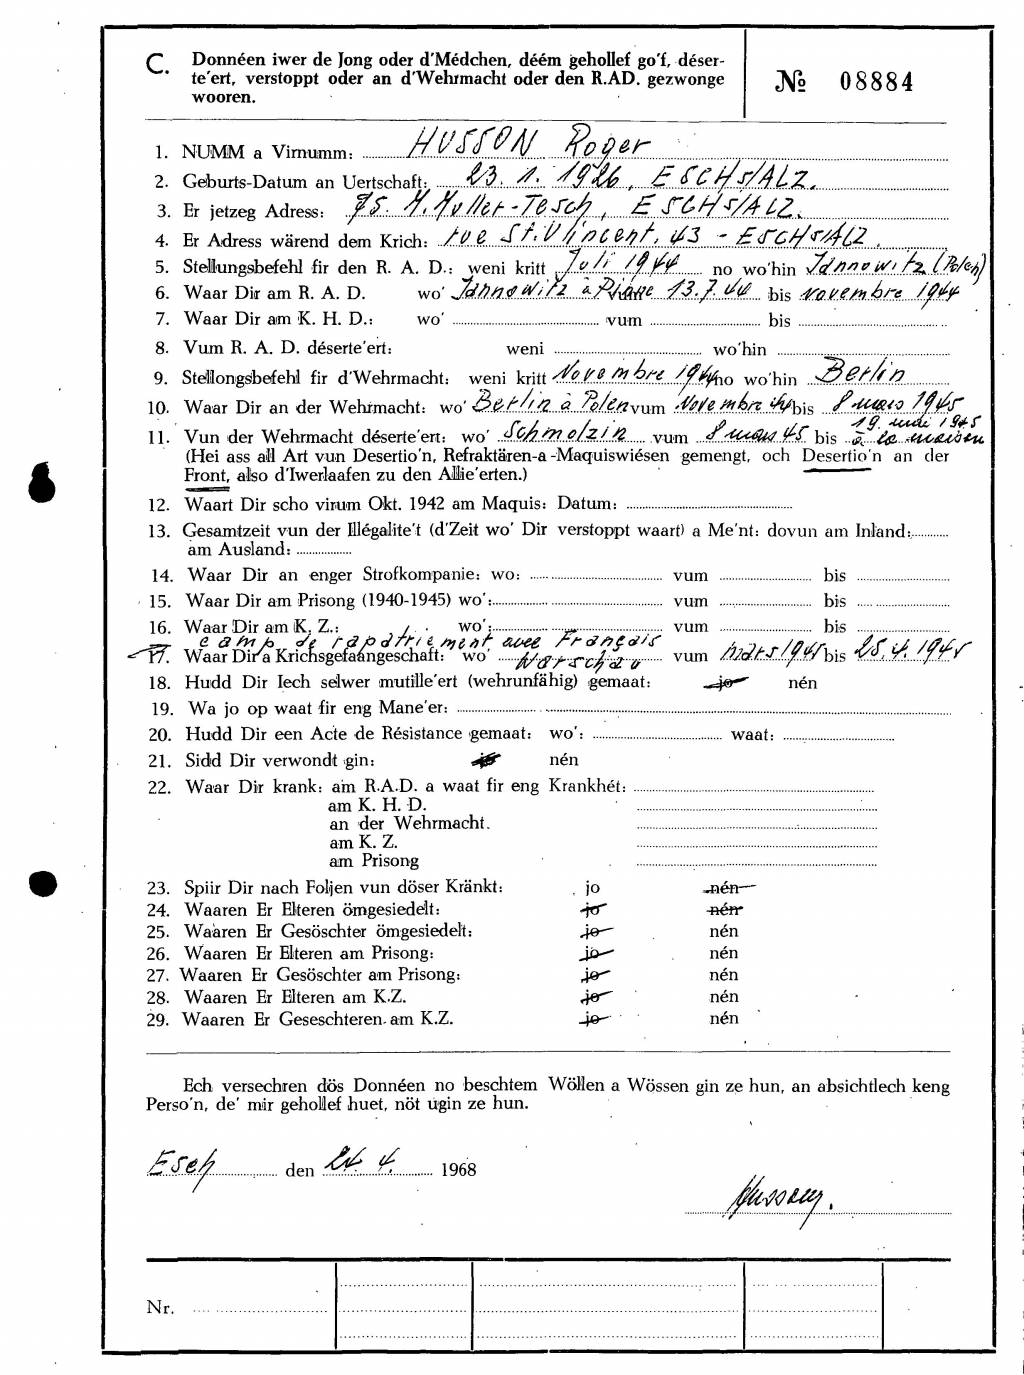 C. Donnéen iwer de Jong oder d'Médchen, déém gehollef go'f, déser-
te'ert, verstoppt oder an d'Wehrmacht oder den R.AD. gezwonge
wooren.
№ 08884
1. NUMM a Virnumm: HUSSON Roger
2. Geburts-Datum an Uertschaft: 23. 1. 1926, ESCHs/ALZ.
3. Er jetzeg Adress: 75. M. Muller-Tesch, ESCHs/ALZ.
4. Er Adress wärend dem Krich: rue St. Vincent, 43 - ESCHs/ALZ.
5. Stellungsbefehl fir den R. A. D.: weni kritt Juli 1944 no wo'hin Jannowitz (Polen)
6. Waar Dir am R. A. D. wo' Jannowitz à 13.7.44 bis novembre 1944
7. Waar Dir am K. H. D.: wo' vum bis
8. Vum R. A. D. déserte'ert: weni wo'hin
9. Stellongsbefehl fir d'Wehrmacht: weni kritt Novembre 1944 no wo'hin Berlin
10. Waar Dir an der Wehrmacht: wo' Berlin à Polen vum Novembre 44 bis 8 mars 1945
19. mai 1945
11. Vun der Wehrmacht déserte'ert: wo' Schmolzin vum 8 mars 45 bis à la maison
(Hei ass all Art vun Desertio'n, Refraktären-a-Maquiswiésen gemengt, och Desertio'n an der
Front, also d'Iwerlaafen zu den Allie'erten.)
12. Waart Dir scho virum Okt. 1942 am Maquis: Datum:
13. Gesamtzeit vun der Illégalite't (d'Zeit wo' Dir verstoppt waart) a Me'nt: dovun am Inland:
am Ausland:
14. Waar Dir an enger Strofkompanie: wo: vum bis
15. Waar Dir am Prisong (1940-1945) wo': vum bis
16. Waar Dir am K. Z.: wo': vum bis
camp de rapatriement avec Français
17. Waar Dir a Krichsgefaangeschaft: wo' Warschau vum mars 1945 bis 25.4.1945
18. Hudd Dir Iech selwer mutille'ert (wehrunfähig) gemaat: jo nén
19. Wa jo op waat fir eng Mane'er:
20. Hudd Dir een Acte de Résistance gemaat: wo': waat:
21. Sidd Dir verwondt gin: jo nén
22. Waar Dir krank: am R.A.D. a waat fir eng Krankhét:
am K. H. D.
an der Wehrmacht.
am K. Z.
am Prisong
23. Spiir Dir nach Foljen vun döser Kränkt: jo nén
24. Waaren Er Elteren ömgesiedelt: jo nén
25. Waaren Er Gesöschter ömgesiedelt: jo nén
26. Waaren Er Elteren am Prisong: jo nén
27. Waaren Er Gesöschter am Prisong: jo nén
28. Waaren Er Elteren am K.Z. jo nén
29. Waaren Er Geseschteren am K.Z. jo nén
Ech versechren dös Donnéen no beschtem Wöllen a Wössen gin ze hun, an absichtlech keng
Perso'n, de' mir gehollef huet, nöt ugin ze hun.
Esch den 24. 4. 1968
Husson
Nr.